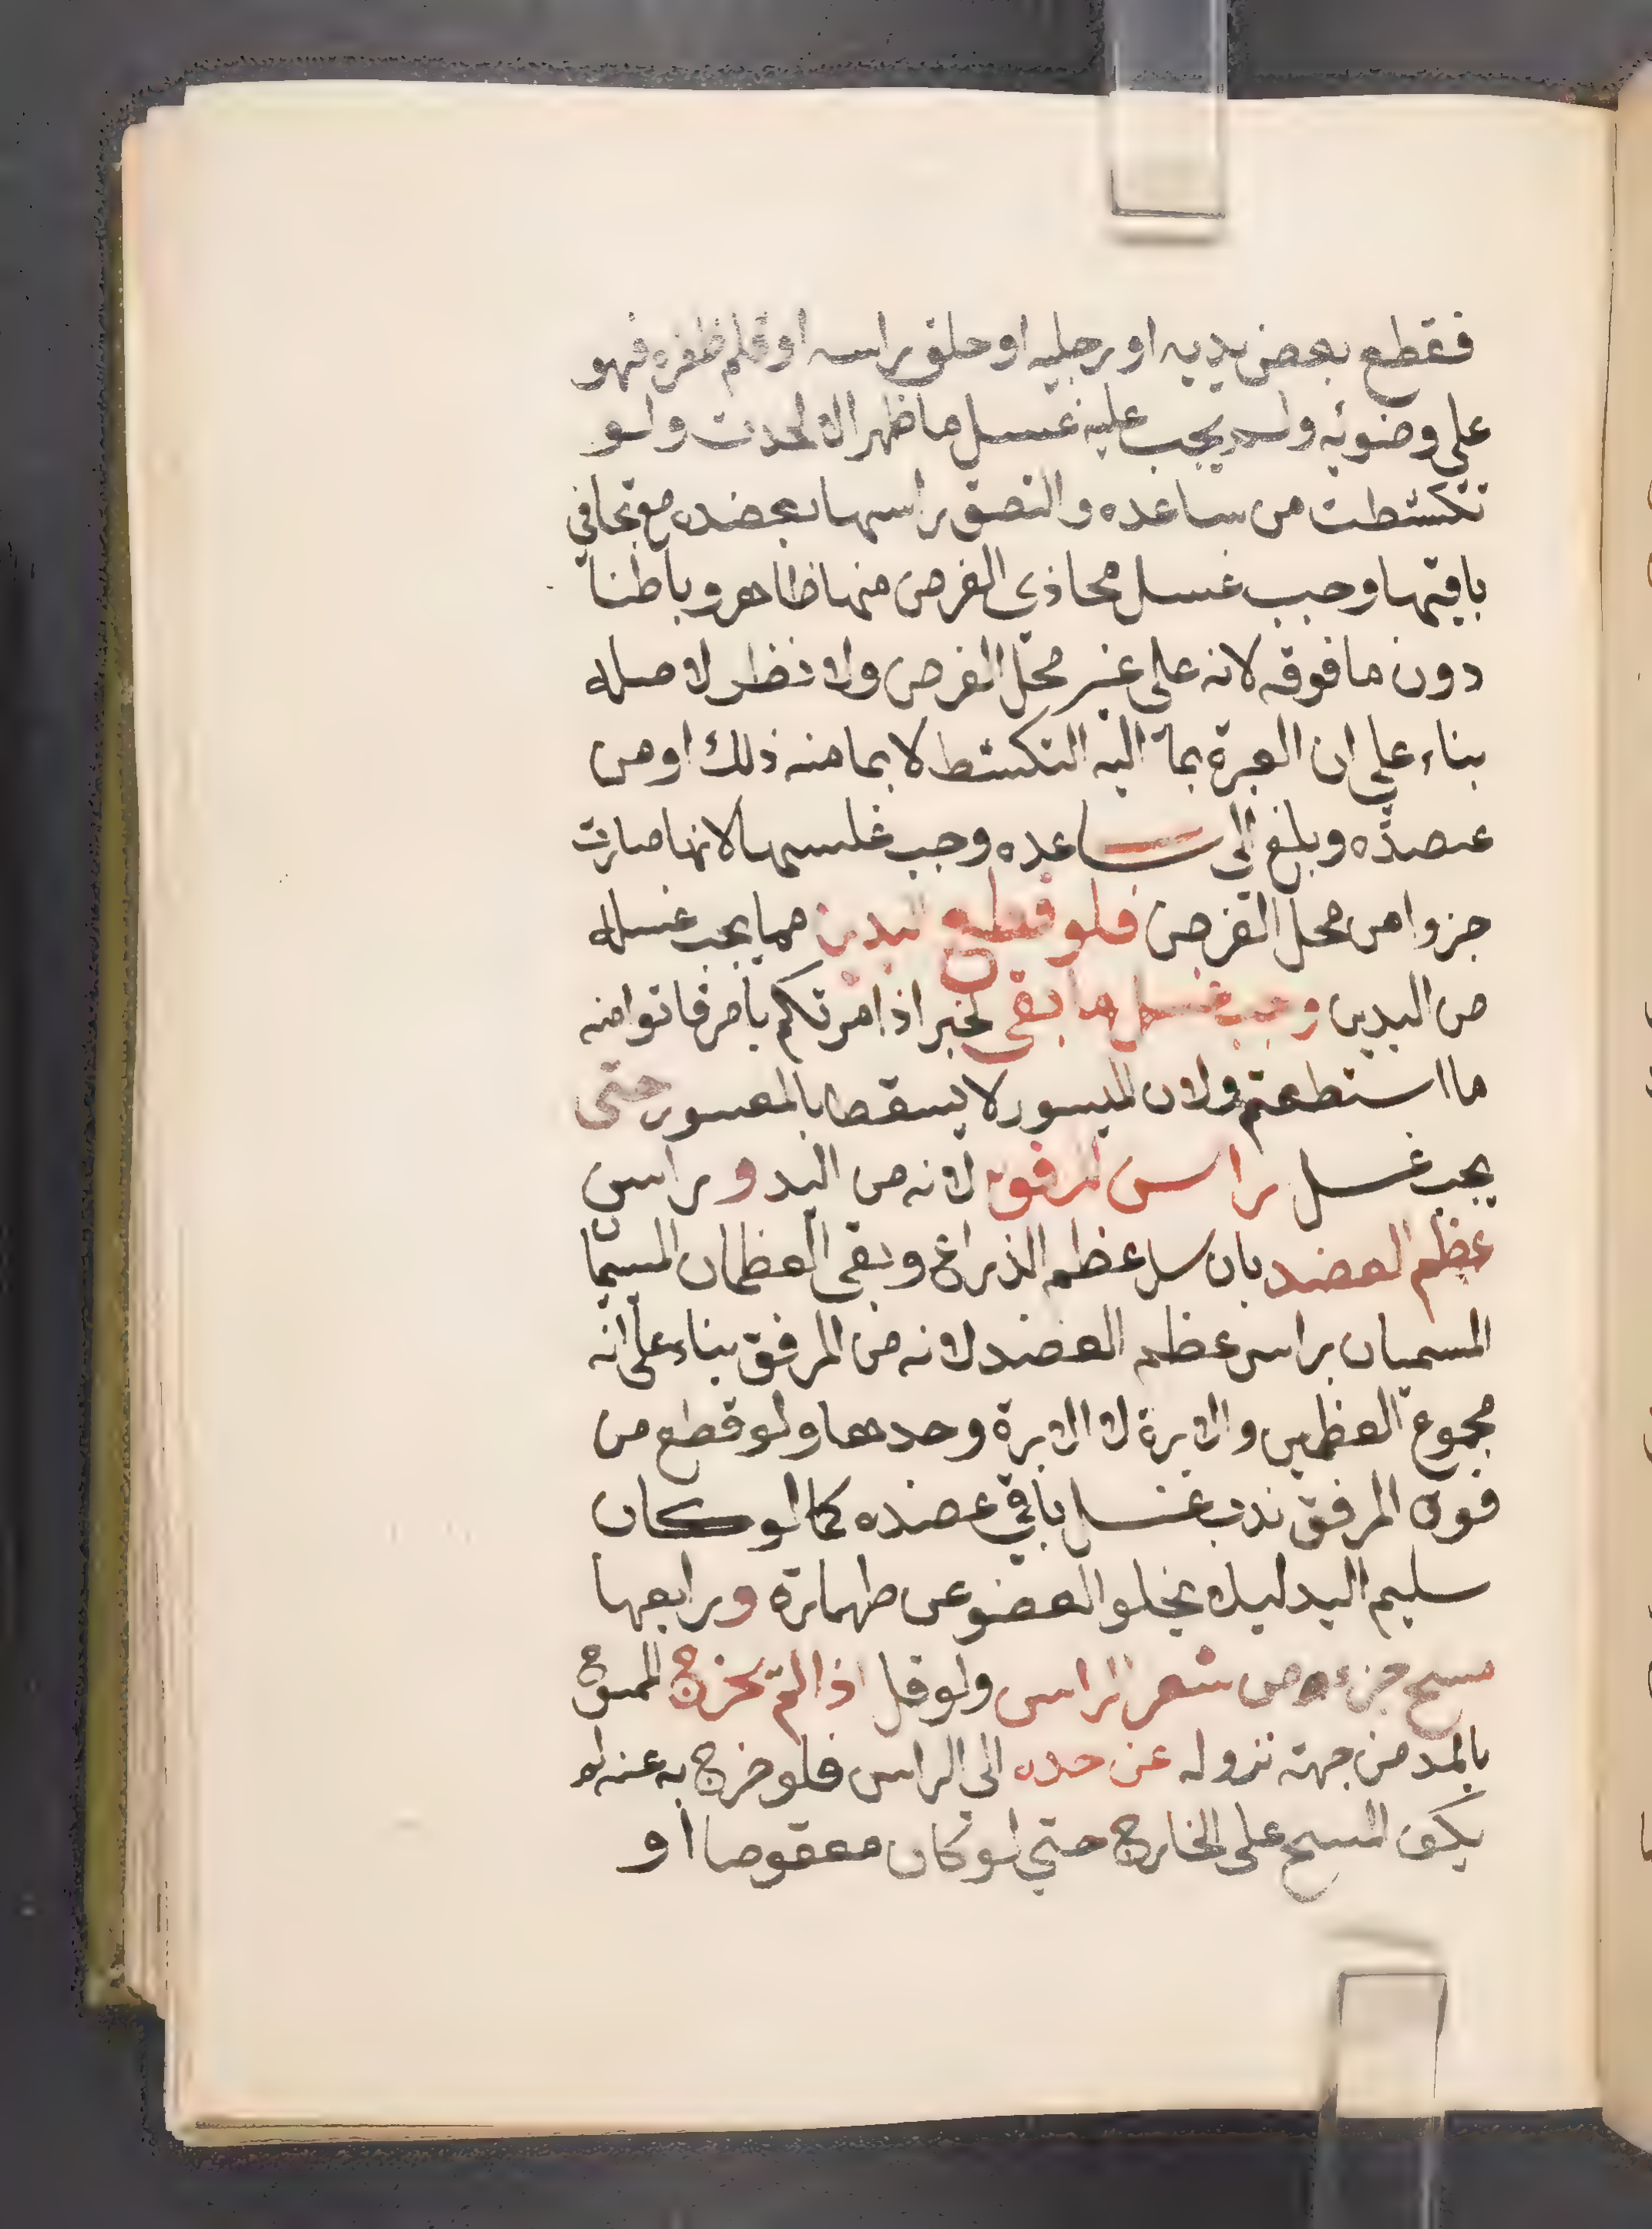 فقطع بعض يديه او رجليه او حلق راسه او قلم ظفره فهو
على وضوئه ولم يجب عليه غسل ما ظهر الا لحدث ولو
تكشطت من ساعده والتصق راسها بعضده مع تجافي
باقيها وجب غسل محاذي الفرض منها ظاهر وباطنا
دون ما فوقه لانه على غير محل الفرض ولا نظر لاصله
بناء على ان العبرة بما اليه التكشط لا بما منه ذلك او من
عضده وبلغ الى ساعده وجب غلسها لانها صارت
جزوا من محل الفرض فلو قطع اليدين مما يجب غسله
من اليدين وجب غسل ما بقى لخبر اذا امرتكم بامر فاتوا منه
ما استطعتم ولان الميسور لا يسقط بالمعسور حتى
يجب غسل راس المرفق لانه من اليد وراس
عظم العضد بان سل عظم الذراع وبقى العظمان المسما
المسميان براس عظم العضد لانه من المرفق بناء على انه
مجموع العظمين والابرة لا الابرة وحدها ولو قطع من
فوق المرفق ندب غسل باقي عضده كما لو كان
سليم اليد ليلا يخلو العضو عن طهارة ورابعها
مسح جزء من شعر الراس ولو قل اذا لم يخرج الممسوح
بالمد من جهة نزوله عن حده الى الراس فلو خرج به عنه لم
يكف المسح على الخارج حتى لو كان معقوصا او